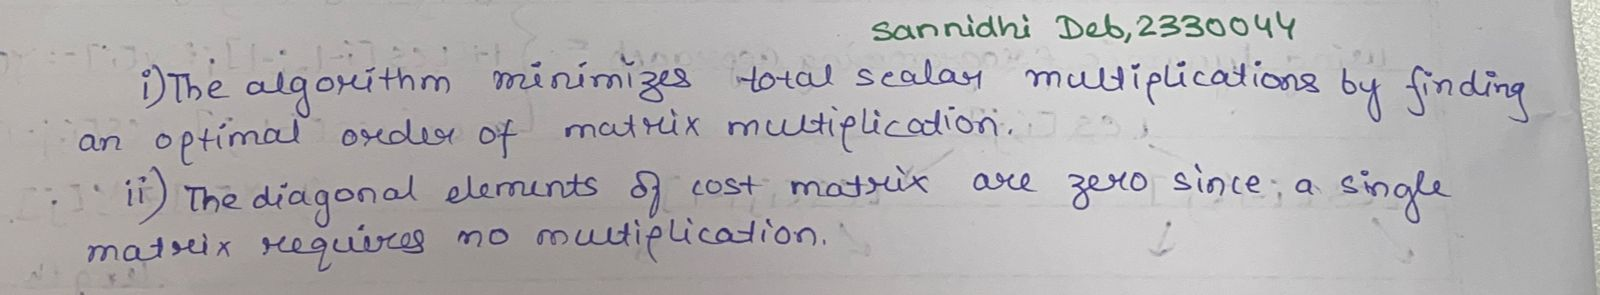 Sannidhi Deb, 2330044
i) The algorithm minimizes total scalar multiplications by finding
an optimal order of matrix multiplication.
ii) The diagonal elements of cost matrix are zero since, a single
matrix requires no multiplication.